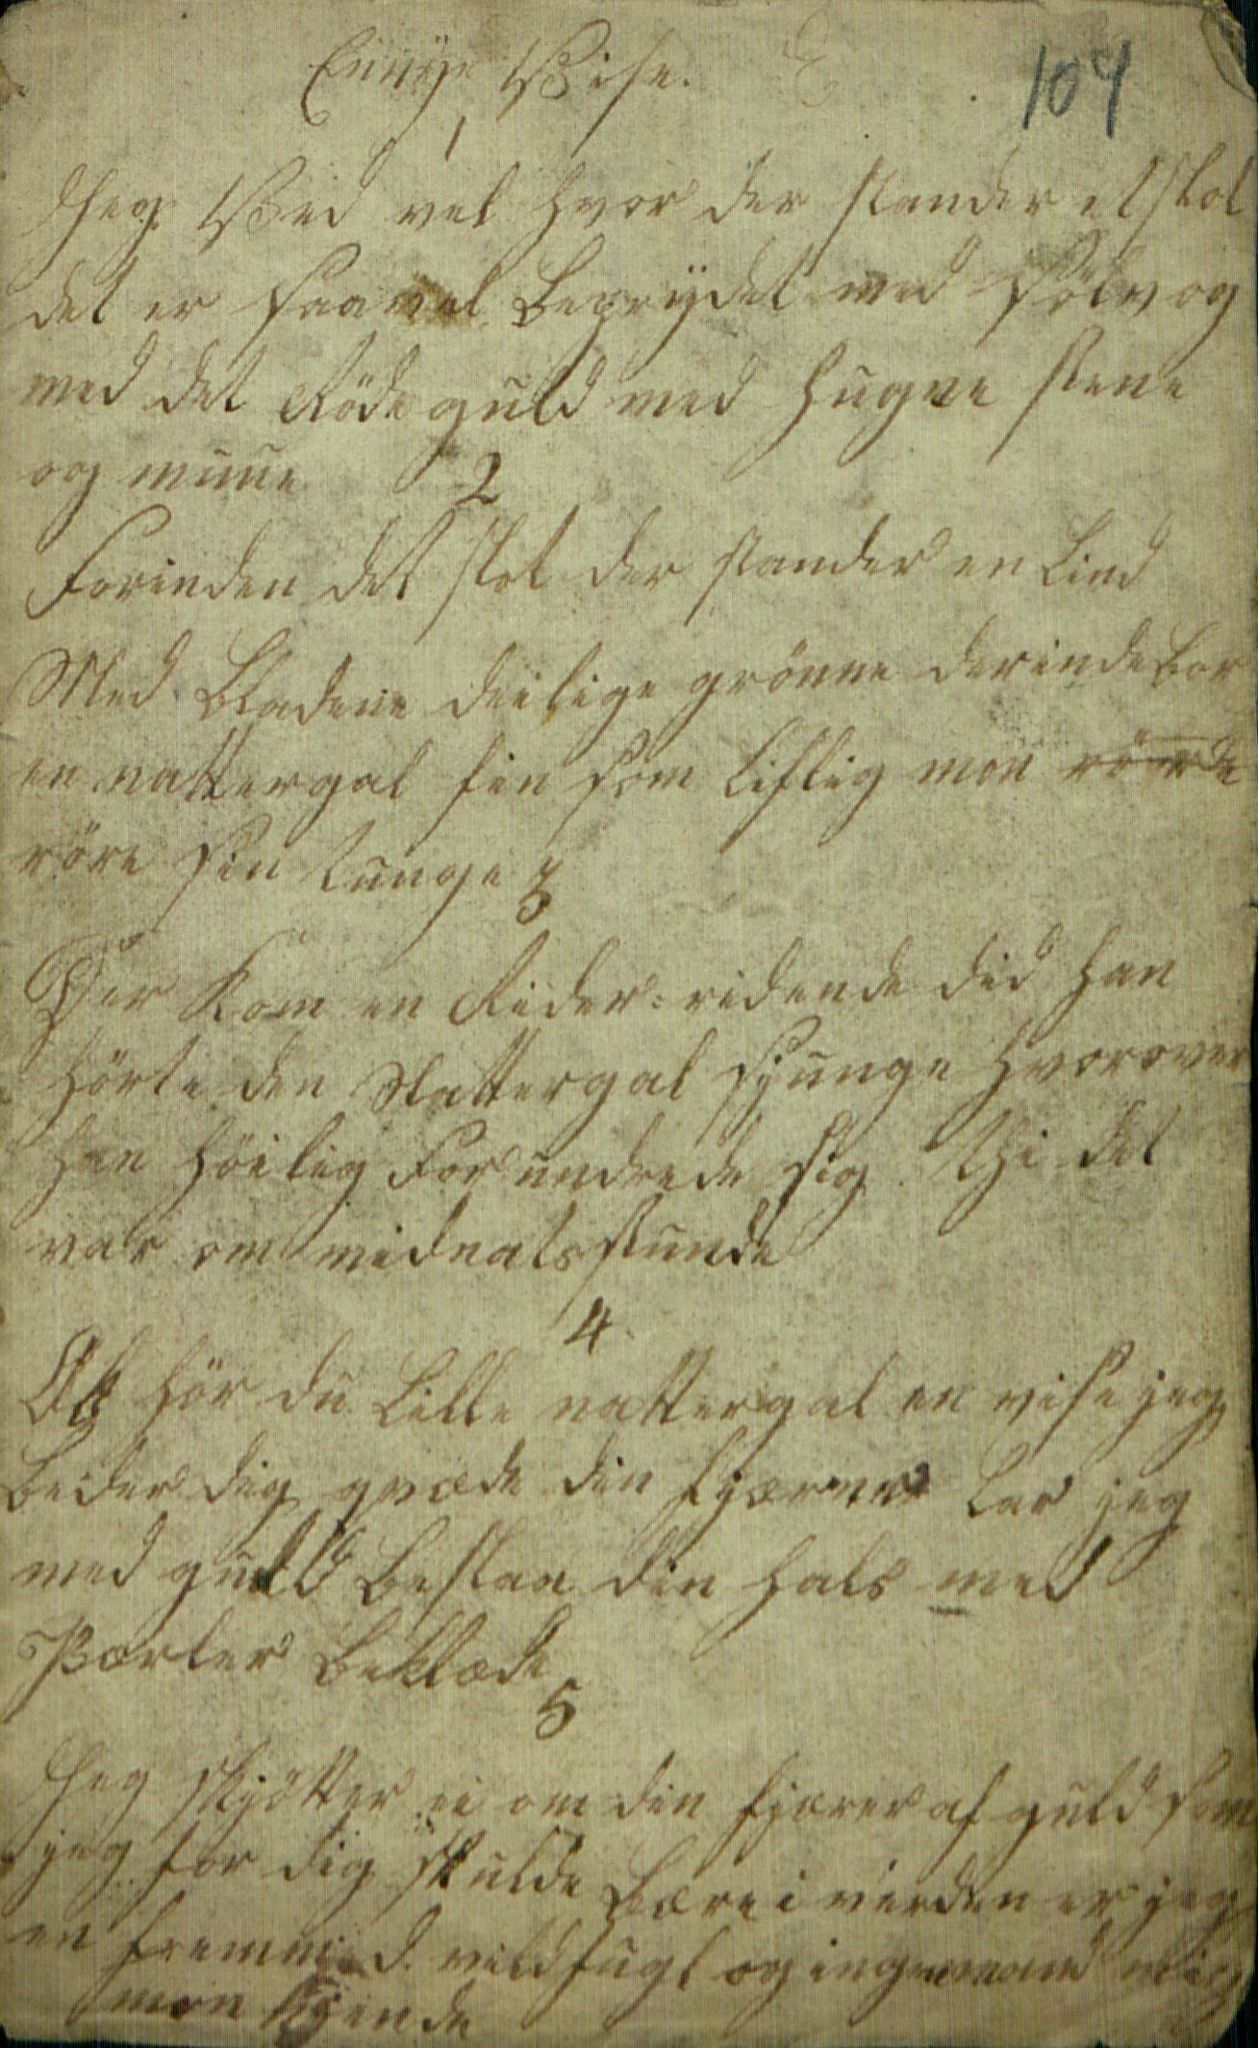 En nye Vise.
104
1
Jeg Veed vel hvor der stander et slot
det er saa vel beprydet med sølv og
med det Røde guld med hugne stene
og muue 2
Forinden det slot der stander en Lind
Med Bladene deilige grønne derinde boer
en nattergal fin som liflig mon
røre sin tunge 3
Der Kom en Rider ridende did han
hørte den Nattergal sjunge hvorover
han høilig forundrede sig. thi det
var om midnats stunde
4
Ak hør du Lille nattergal en vise jeg
beder dig qvæde din fjærer Lar jeg
med guld beslaa din hals med
Pærler beklæde
5
Jeg skjøtter ei om din fjærer af guld som
jeg for dig skulde bære i verden er jeg
en fremmed vild fugl og ingen mand mig
mon kjende